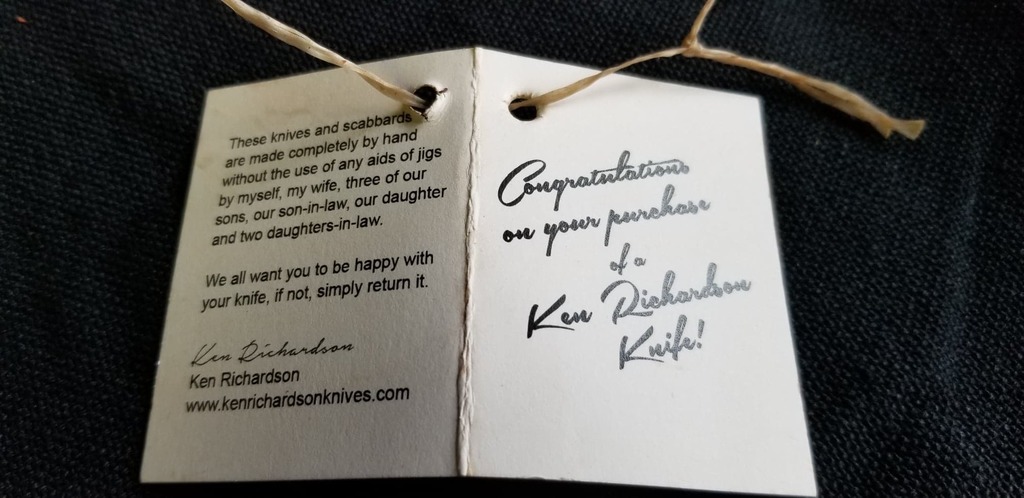 These knives and scabbards
are made completely by hand
without the use of any aids of jigs
by myself, my wife, three of our
sons, our son-in-law, our daughter
and two daughters-in-law.
We all want you to be happy with
your knife, if not, simply return it.
Ken Richardson
Ken Richardson
www.kenrichardsonknives.com
Congratulations
on your purchase
of a
Ken Richardson
Knife!